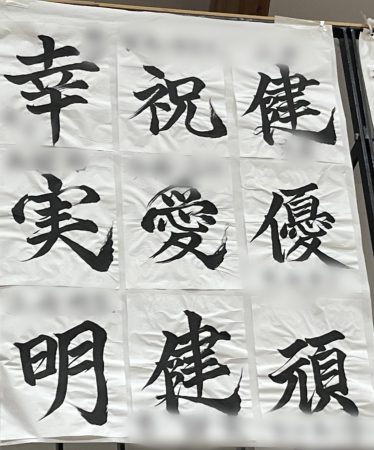 幸 祝 健
実 愛 優
明 健 頑